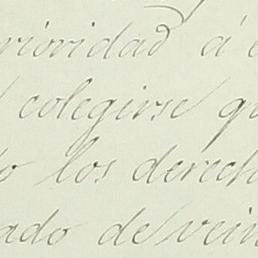 rioridad á e
colegirse qu
o los derech
ado de vein